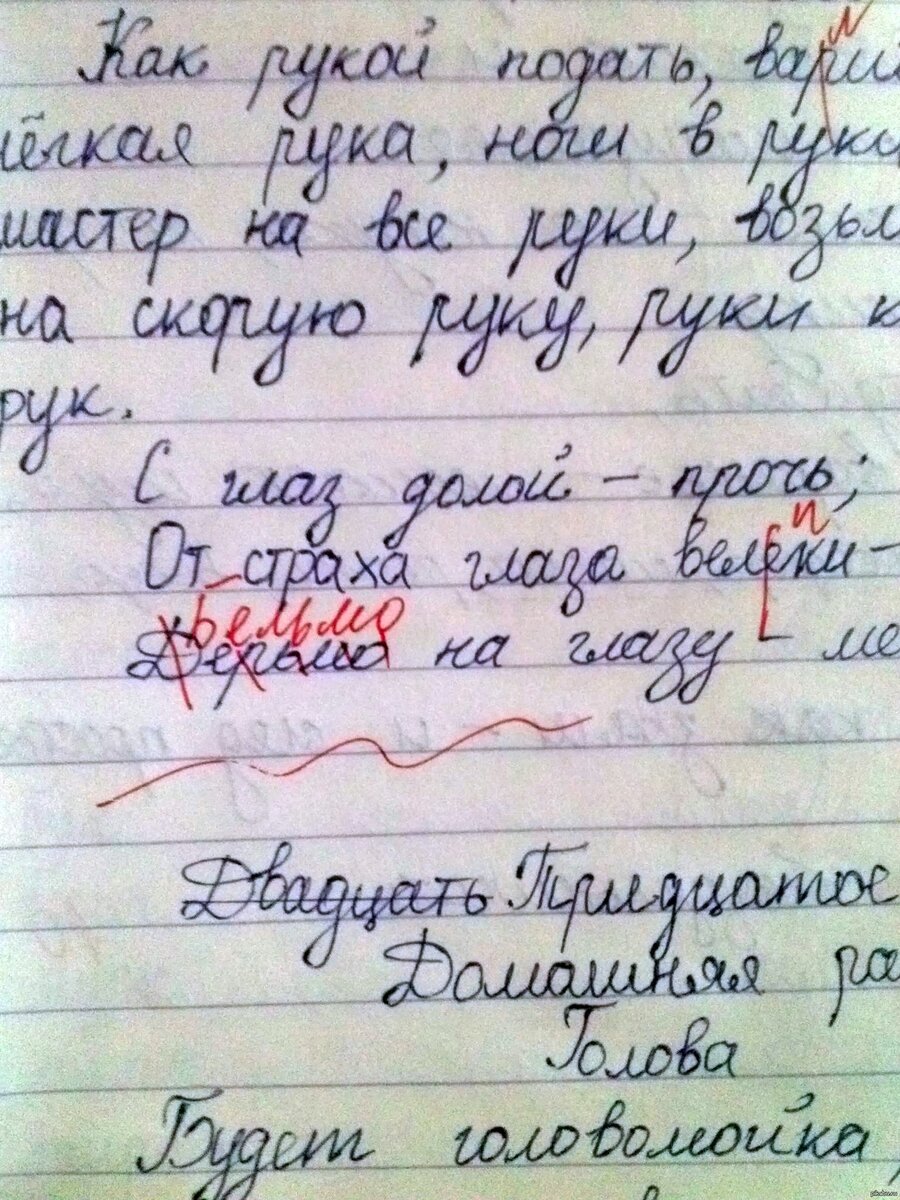 Как рукой подать,
лёгкая рука, ноги в руки
мастер на все руки,
на скорую руку, руки
рук.
С глаз долой – прочь;
п
От страха глаза велеки –
Бельмо
Дерьмо на глазу –
Двадцать Тридцатое
Домашняя
Голова
Будет головомойка